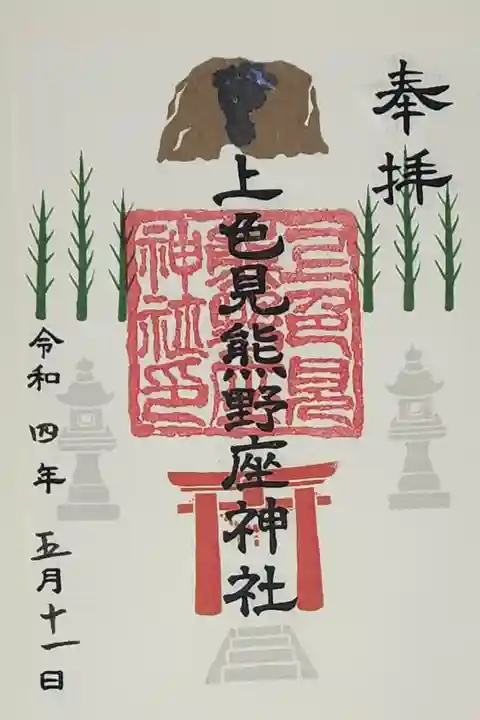 奉拝
上色見熊野座神社
上色見
熊野座
神社印
令和四年五月十一日